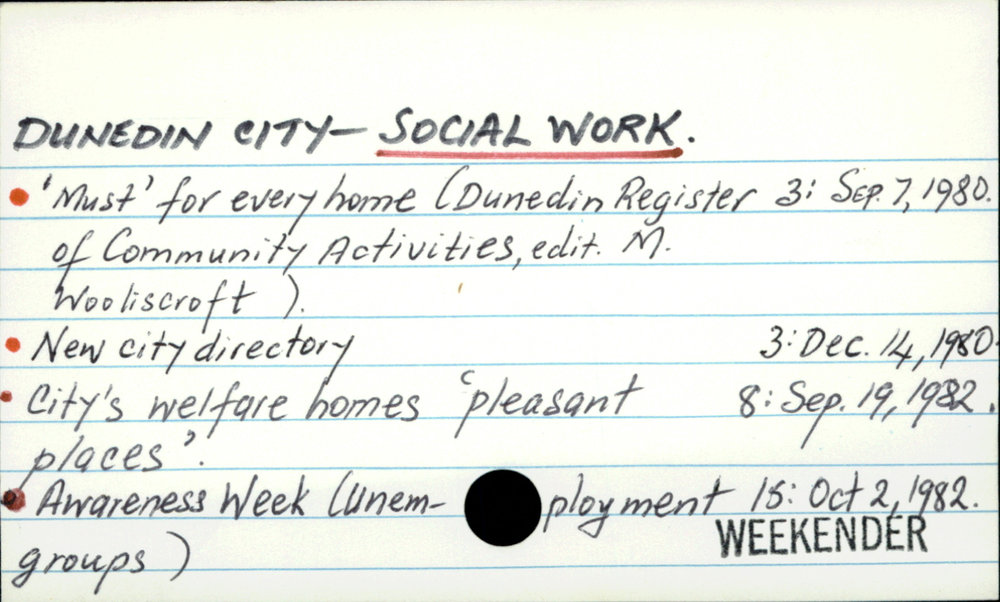 DUNEDIN CITY— SOCIAL WORK.
'Must' for every home (Dunedin Register 3: Sep. 7, 1980.
of Community Activities, edit. M.
Wooliscroft ).
New city directory 3: Dec. 14, 1980.
City's welfare homes 'pleasant 8: Sep. 19, 1982.
places'.
Awareness Week (Unem- ployment 15: Oct 2, 1982.
WEEKENDER
groups )